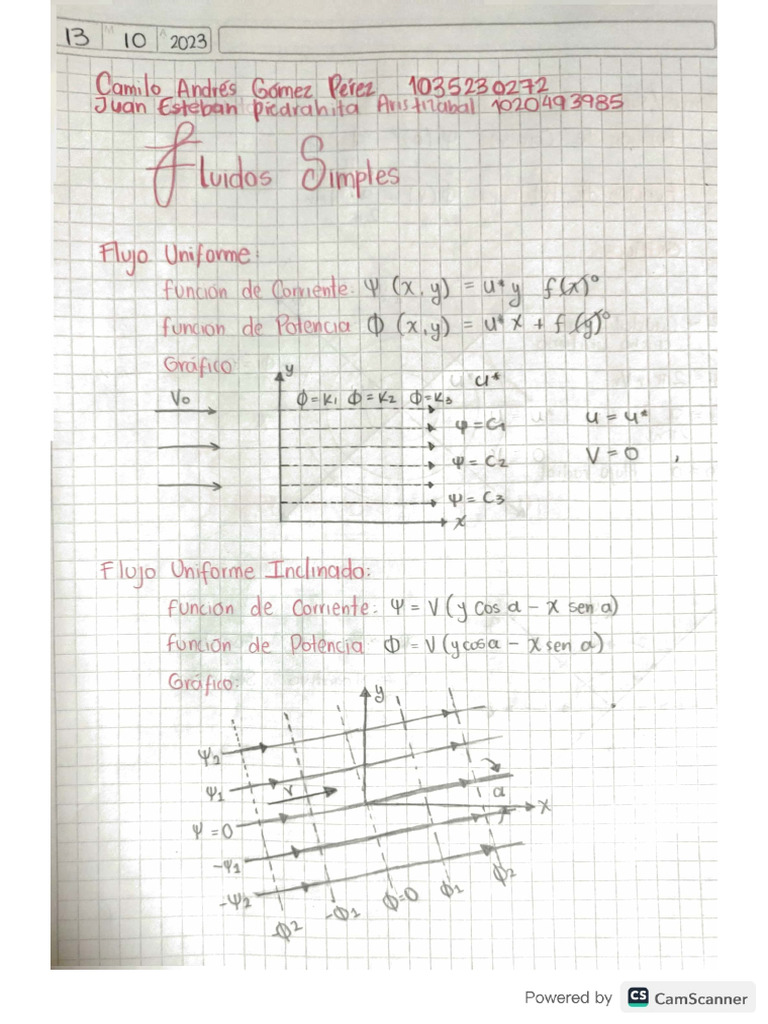 13 10 2023
Camilo Andrés Gómez Pérez 1035230272
Juan Esteban Piedrahita Aristizabal 1020493985
Fluidos Simples
Flujo Uniforme:
función de Corriente: Ψ (x,y) = u* y f(x)⁰
función de Potencia Φ (x,y) = u* x + f(y)⁰
Gráfico
y
u*
V₀
Φ=K₁ Φ=K₂ Φ=K₃
Ψ=C₁
u = u*
Ψ=C₂
V=0 ,
Ψ=C₃
x
Flujo Uniforme Inclinado:
función de Corriente: Ψ = V(y cos α - x sen α)
función de Potencia Φ = V(y cos α - x sen α)
Gráfico:
y
Ψ₂
Ψ₁
V
α
x
Ψ=0
-Ψ₁
-Ψ₂
-Φ₂
-Φ₁
Φ=0
Φ₁
Φ₂
Powered by CS CamScanner